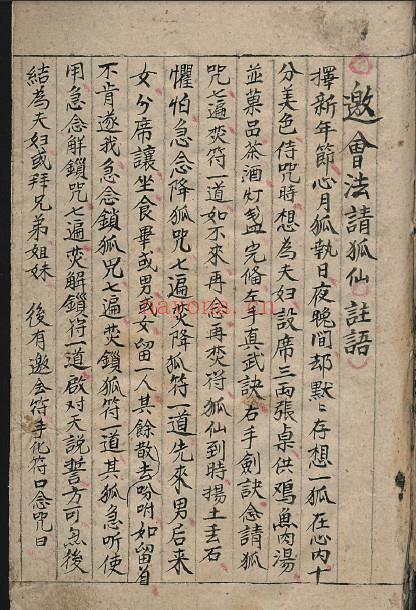 邀會法請狐仙註語
擇新年節心月狐執日夜晚間却默〻存想一狐在心内十
分美色侍咒時想為夫妇設席三両張桌供鸡魚肉湯
並菓品茶酒灯盏完俻左手真武訣右手劍訣念請狐
咒七遍焚符一道如不來再念再焚符狐仙到時揚土丢石
懼怕急念降狐咒七遍焚降狐符一道先來男后来
女分席讓坐食畢或男或女留一人其餘散去吩咐如留首
不肯遂我急念鎖狐咒七遍焚鎖狐符一道其狐急听使
用急念解鎖咒七遍焚解鎖符一道啟对天説誓方可忽後
結為夫妇或拜兄弟姐妹 後有邀会符手化符口念咒曰
nayona.cn